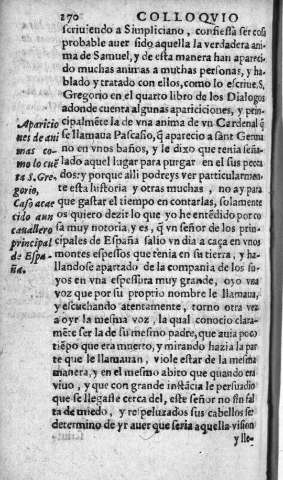 270 COLLOQVIO
scriuiendo a Simpliciano, confiessa ser cosa
probable auer sido aquella la verdadera ani
ma de Samuel, y de esta manera han apareci
do muchas animas a muchas personas, y ha
blado y tratado con ellos, como lo escriue S.
Gregorio en el quarto libro de los Dialogos
adonde cuenta algunas apariciciones, y prin
cipalmẽte la de vna anima de vn Cardenal q̃
se llamaua Pascasio, q̃ aparecio a sant Germa
no en vnos baños, y le dixo que tenia seña-
lado aquel lugar para purgar en el sus peca
dos: y porque alli podreys ver particularmen
te esta historia y otras muchas, no ay para
que gastar el tiempo en contarlas, solamente
os quiero dezir lo que yo he entẽdido por co
sa muy notoria, y es, q̃ vn señor de los prin-
cipales de España salio vn dia a caça en vnos
montes espessos que tenia en su tierra, y ha-
llandose apartado de la compañia de los su-
yos en vna espessura muy grande, oyo vna
voz que por su proprio nombre le llamaua,
y escuchando atentamente, torno otra vez
a oyr la mesma voz, la qual conocio clara-
mẽte ser la de su mesmo padre, que auia poco
tiẽpo que era muerto, y mirando hazia la par
te que le llamauan, viole estar de la mesma
manera, y en el mesmo abito que quando era
viuo, y que con grande instãcia le persuadio
que se llegasse cerca del, este señor no sin fal
ta de miedo, y respeluzados sus cabellos se
determino de yr a uer que seria aquella vision
y lle-
Aparicio
nes de ani
mas co-
mo lo cuẽ
ta S. Gre
gorio.
Caso acae
cido a un
cauallero
principal
de Espa-
ña.